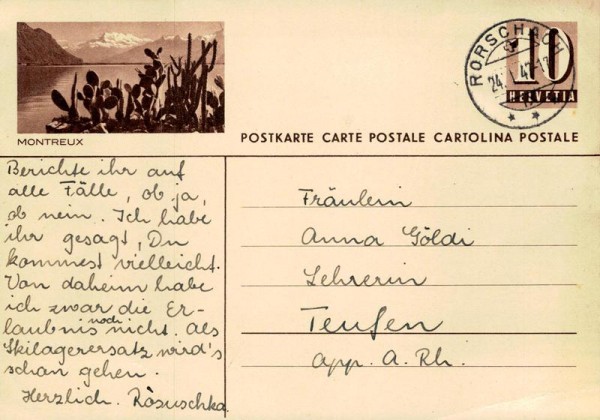 MONTREUX
RORSCHACH
10
HELVETIA
POSTKARTE CARTE POSTALE CARTOLINA POSTALE
Berichte ihr auf
alle Fälle, ob ja,
ob nein. Ich habe
ihr gesagt, Du
kommest vielleicht.
Von daheim habe
ich zwar die Er-
laubnis noch nicht. Als
Skilagerersatz wird's
schon gehen.
Herzlich. Rösuschka
Fräulein
Anna Göldi
Lehrerin
Teufen
App. A. Rh.